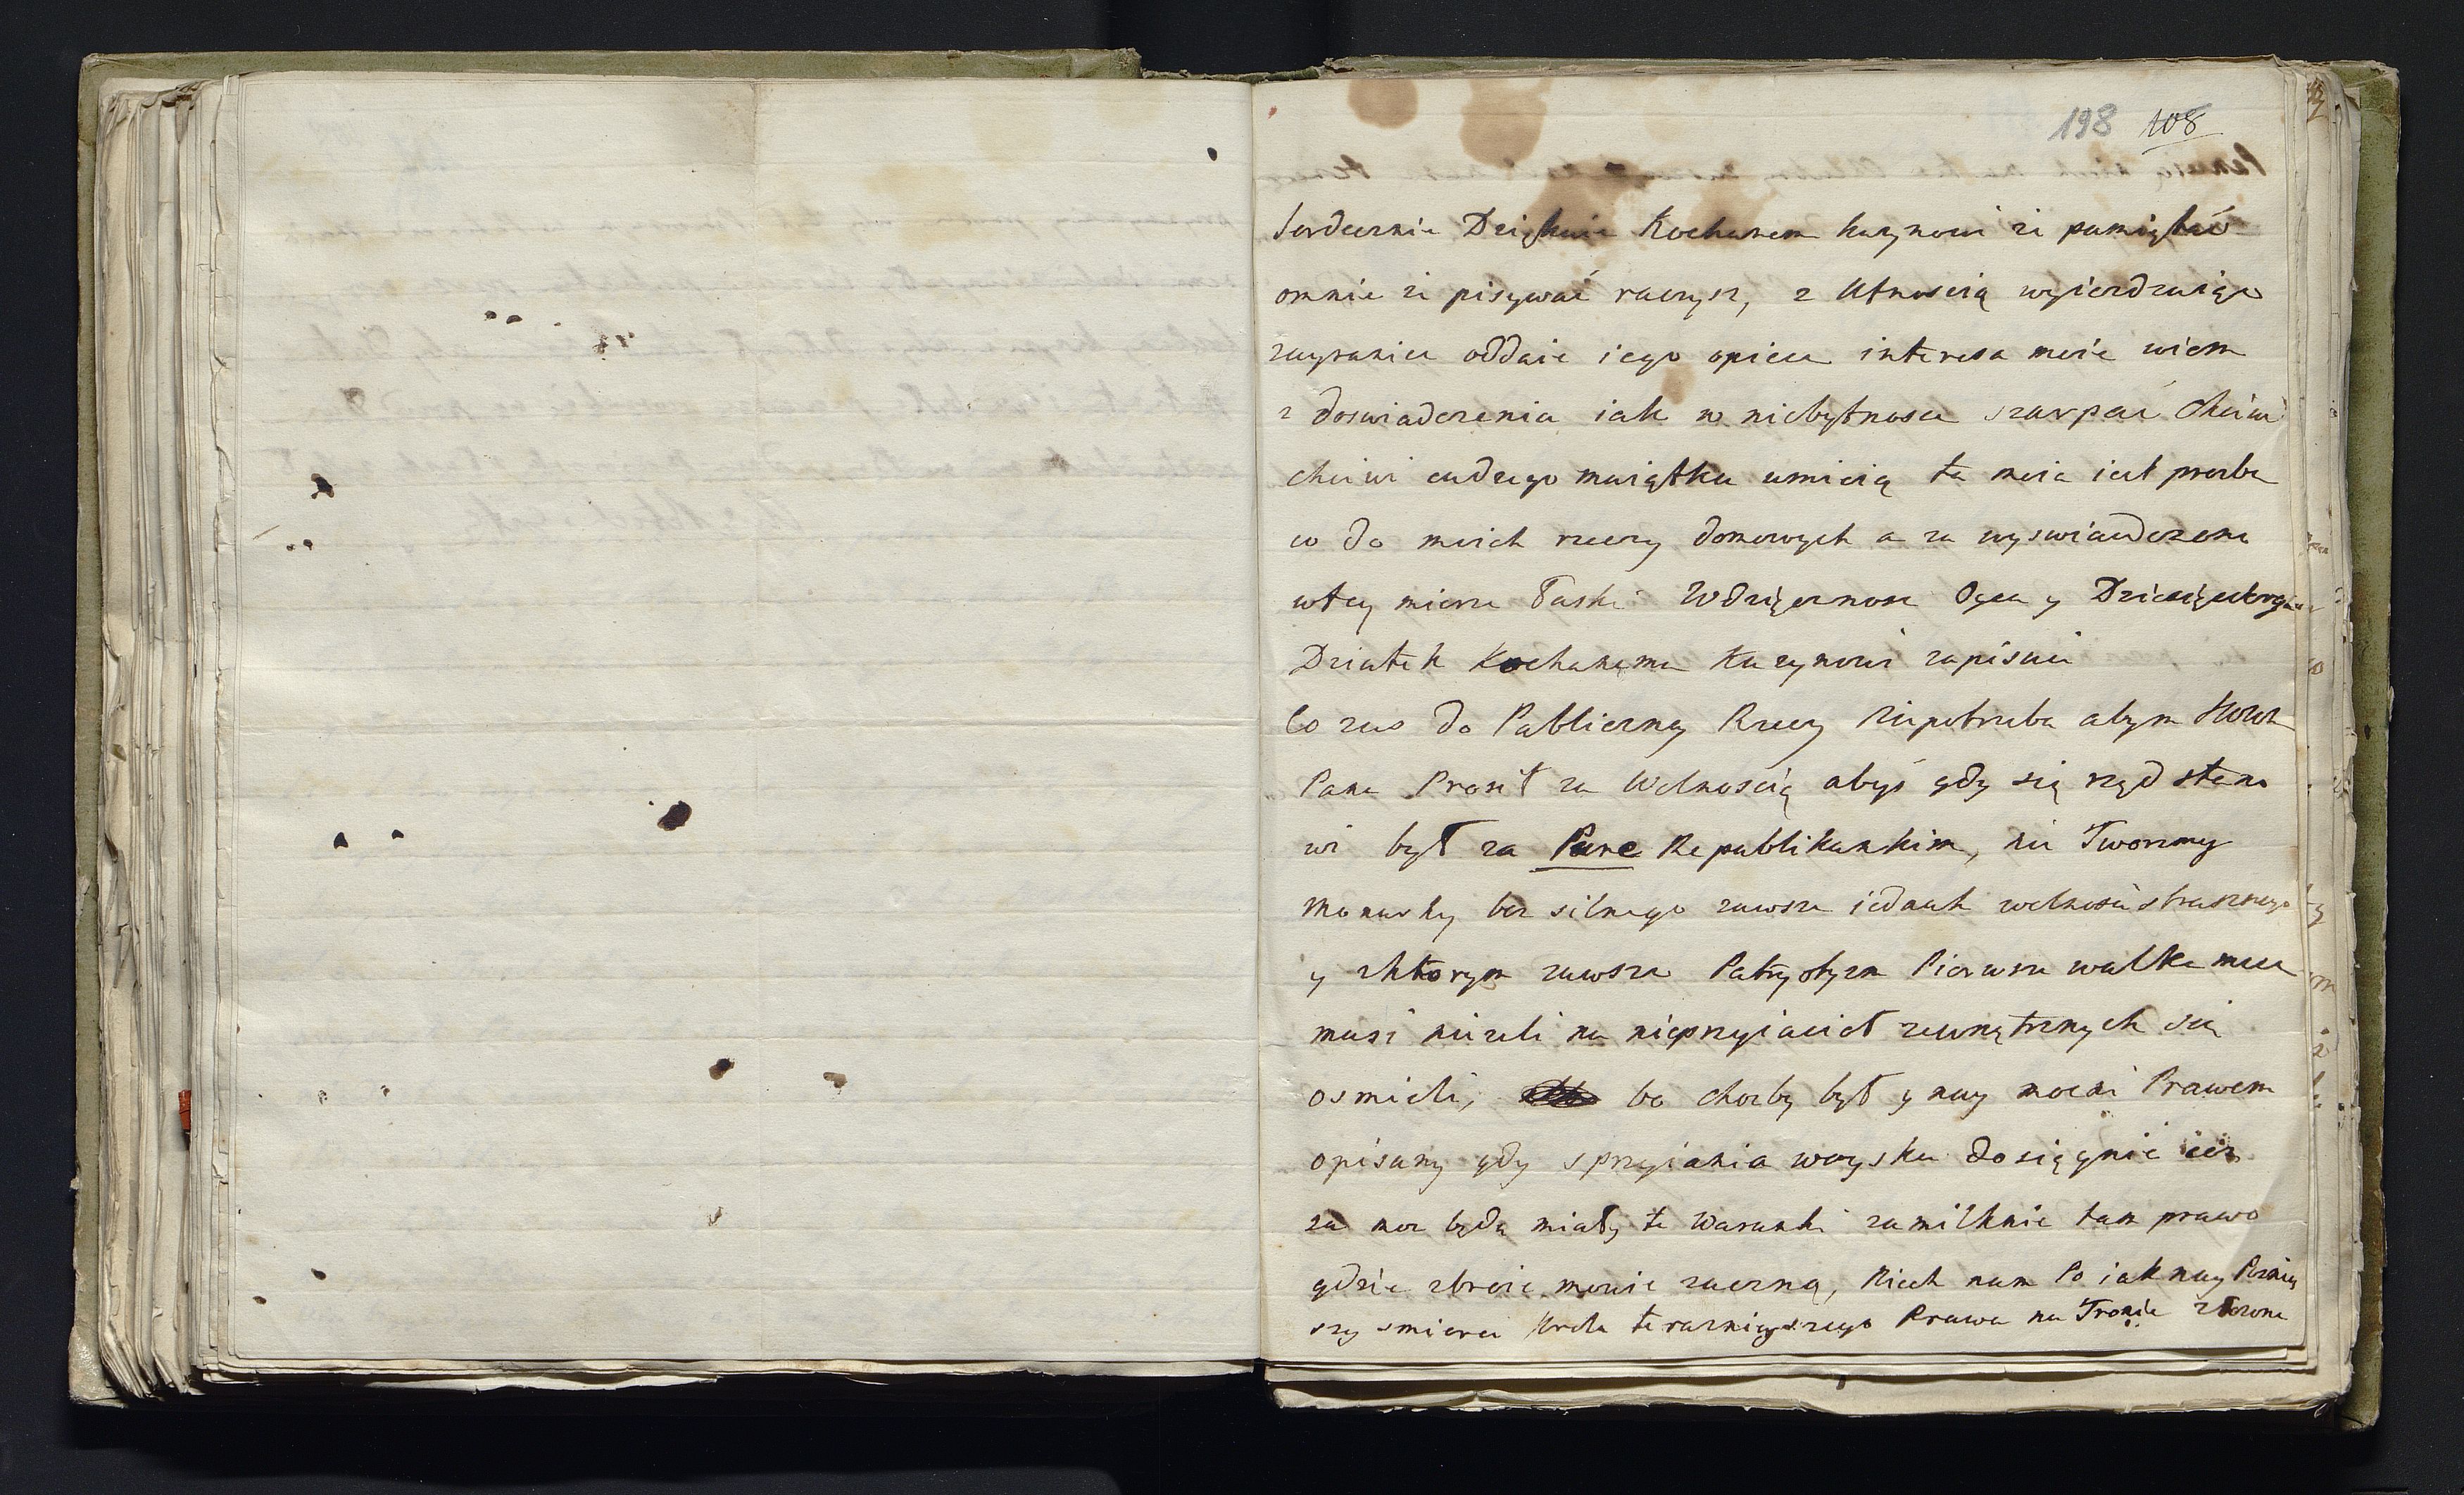 198 108
Serdecznie Dziękuie Kochanem kuzynowi ze pamiętać
omnie ze pisywać raczysz, z Ufnością wyieżdzaiąc
zagranicę oddaie iego opiece interesa moie wiem
z doswiadczenia iak w niebytnosci szarpać
chciwi cudzego maiątku umieią ta moia iest prozba
co do moich rzeczy domowych a za wyswiadczone
wtey mierze łaski Wdzięcznosc Oyca y
Dziatek Kochanemu Kuzynowi zapisuie
Co zas do Publiczney Rzeczy Niepotrzeba abym
Pana Prosił za Wolnoscią abyś gdy się rząd stano
wi był za Pure Republikankim, nie Tworzmy
monarhy bez silnego zawsze iednak wolnosci strasznego
y zktorym zawsze Patryotyzm Pierwsze walke miec
musi niżeli na nieprzyiacioł zewnętrznych się
osmieli, bo chocby był y nay mocni Prawem
opisany gdy sprzyiania woyska dosięgnie iuz
za moc będą miały te Warunki zamilknie tam prawo
gdzie zbroie mowic zaczną, Niech nam Po iak nay Pozniey
szey smierci Krola teraznieyszego Prawa na Tronie złozone